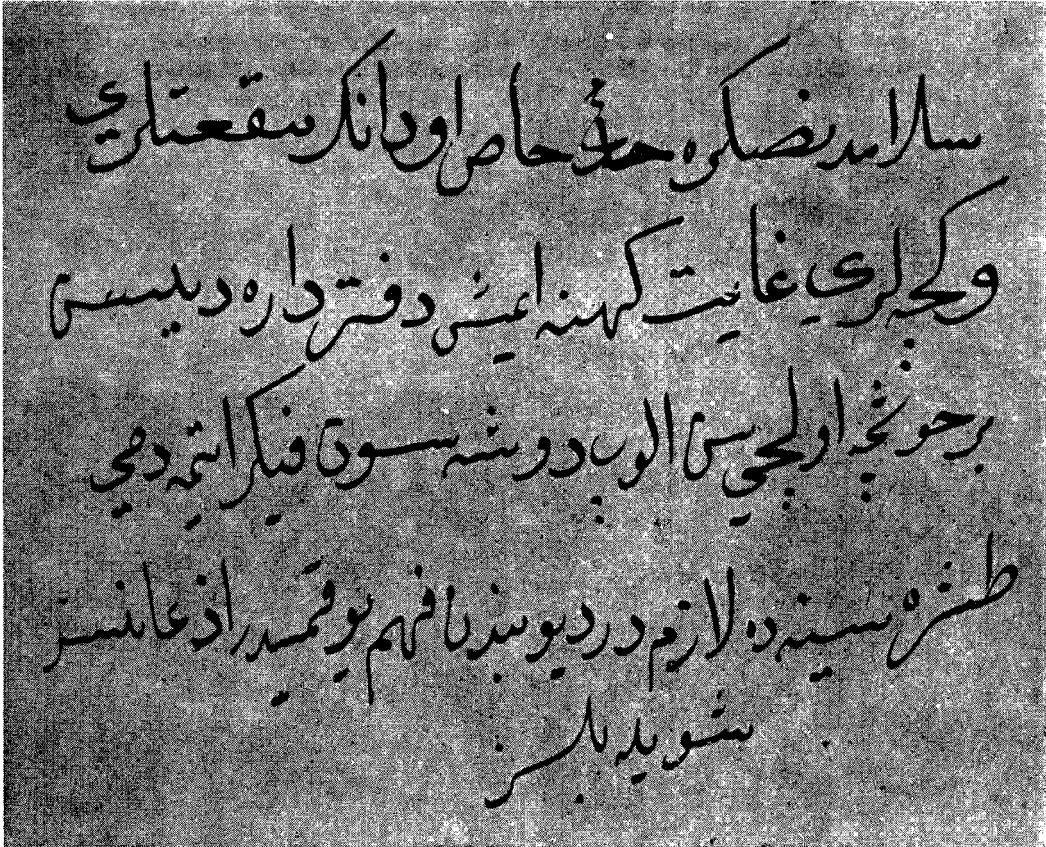 سلامدنصكره خاص اودانك مقعتلري
و كجه لري غايت كهنه ايمش دفترداره ديسسن
بر خوشجه اولچيسن الوب دوشه سون فيكر ايتمه دخي
طشره سينه ده لازم در ديو فهم يوقميدر اذعانسز
شويله بلسز